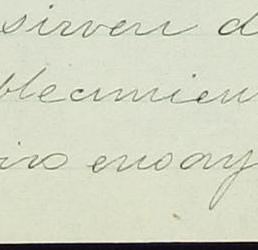 sirven d
blecimien
iro ensay